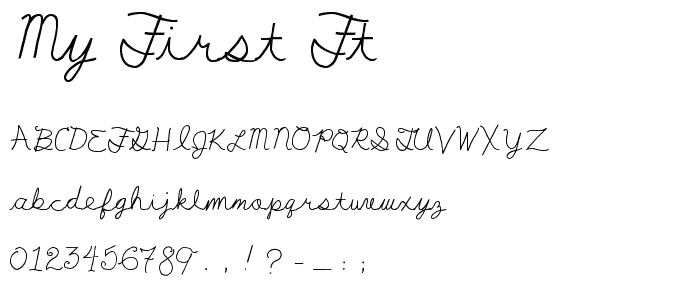 My First Ft
ABCDEFGHIJKLMNOPQRSTUVWXYZ
abcdefghijklmnopqrstuvwxyz
0123456789 . , ! ? - _ : ;